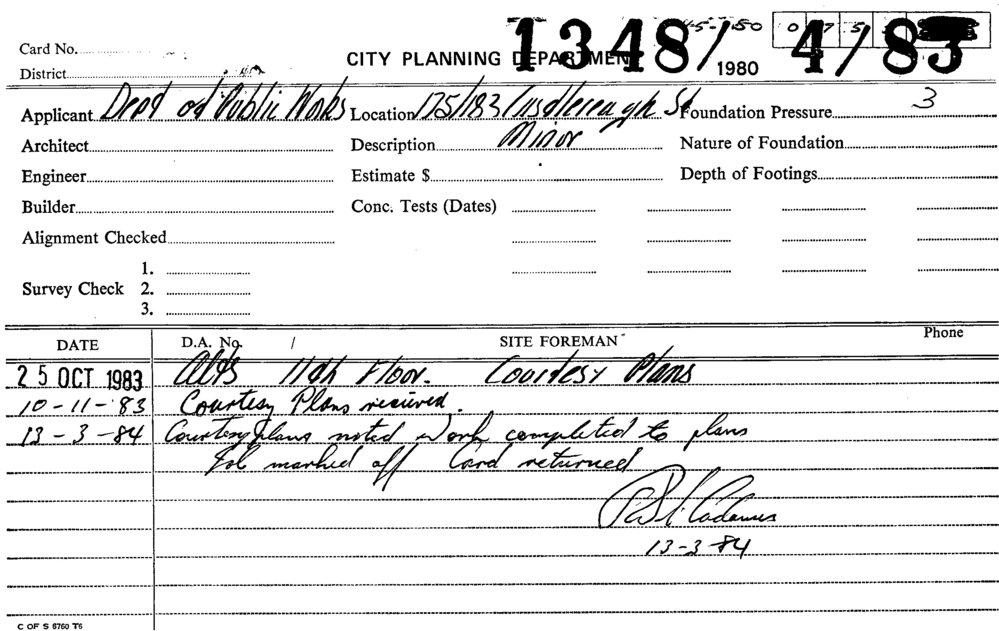 Card No.
CITY PLANNING DEPARTMENT 1348/1980 4/83
District
Applicant Dept of Public Works Location 175/183 Castlereagh St Foundation Pressure 3
Architect Description Minor Nature of Foundation
Engineer Estimate $ Depth of Footings
Builder Conc. Tests (Dates)
Alignment Checked
1.
Survey Check 2.
3.
DATE D.A. No. / SITE FOREMAN Phone
25 OCT 1983 Alts 11th Floor. Courtesy Plans
10-11-83 Courtesy Plans received.
13-3-84 Courtesy plans noted Work completed to plans
Job marked off Card returned
13-3-84
C OF S 6760 T6